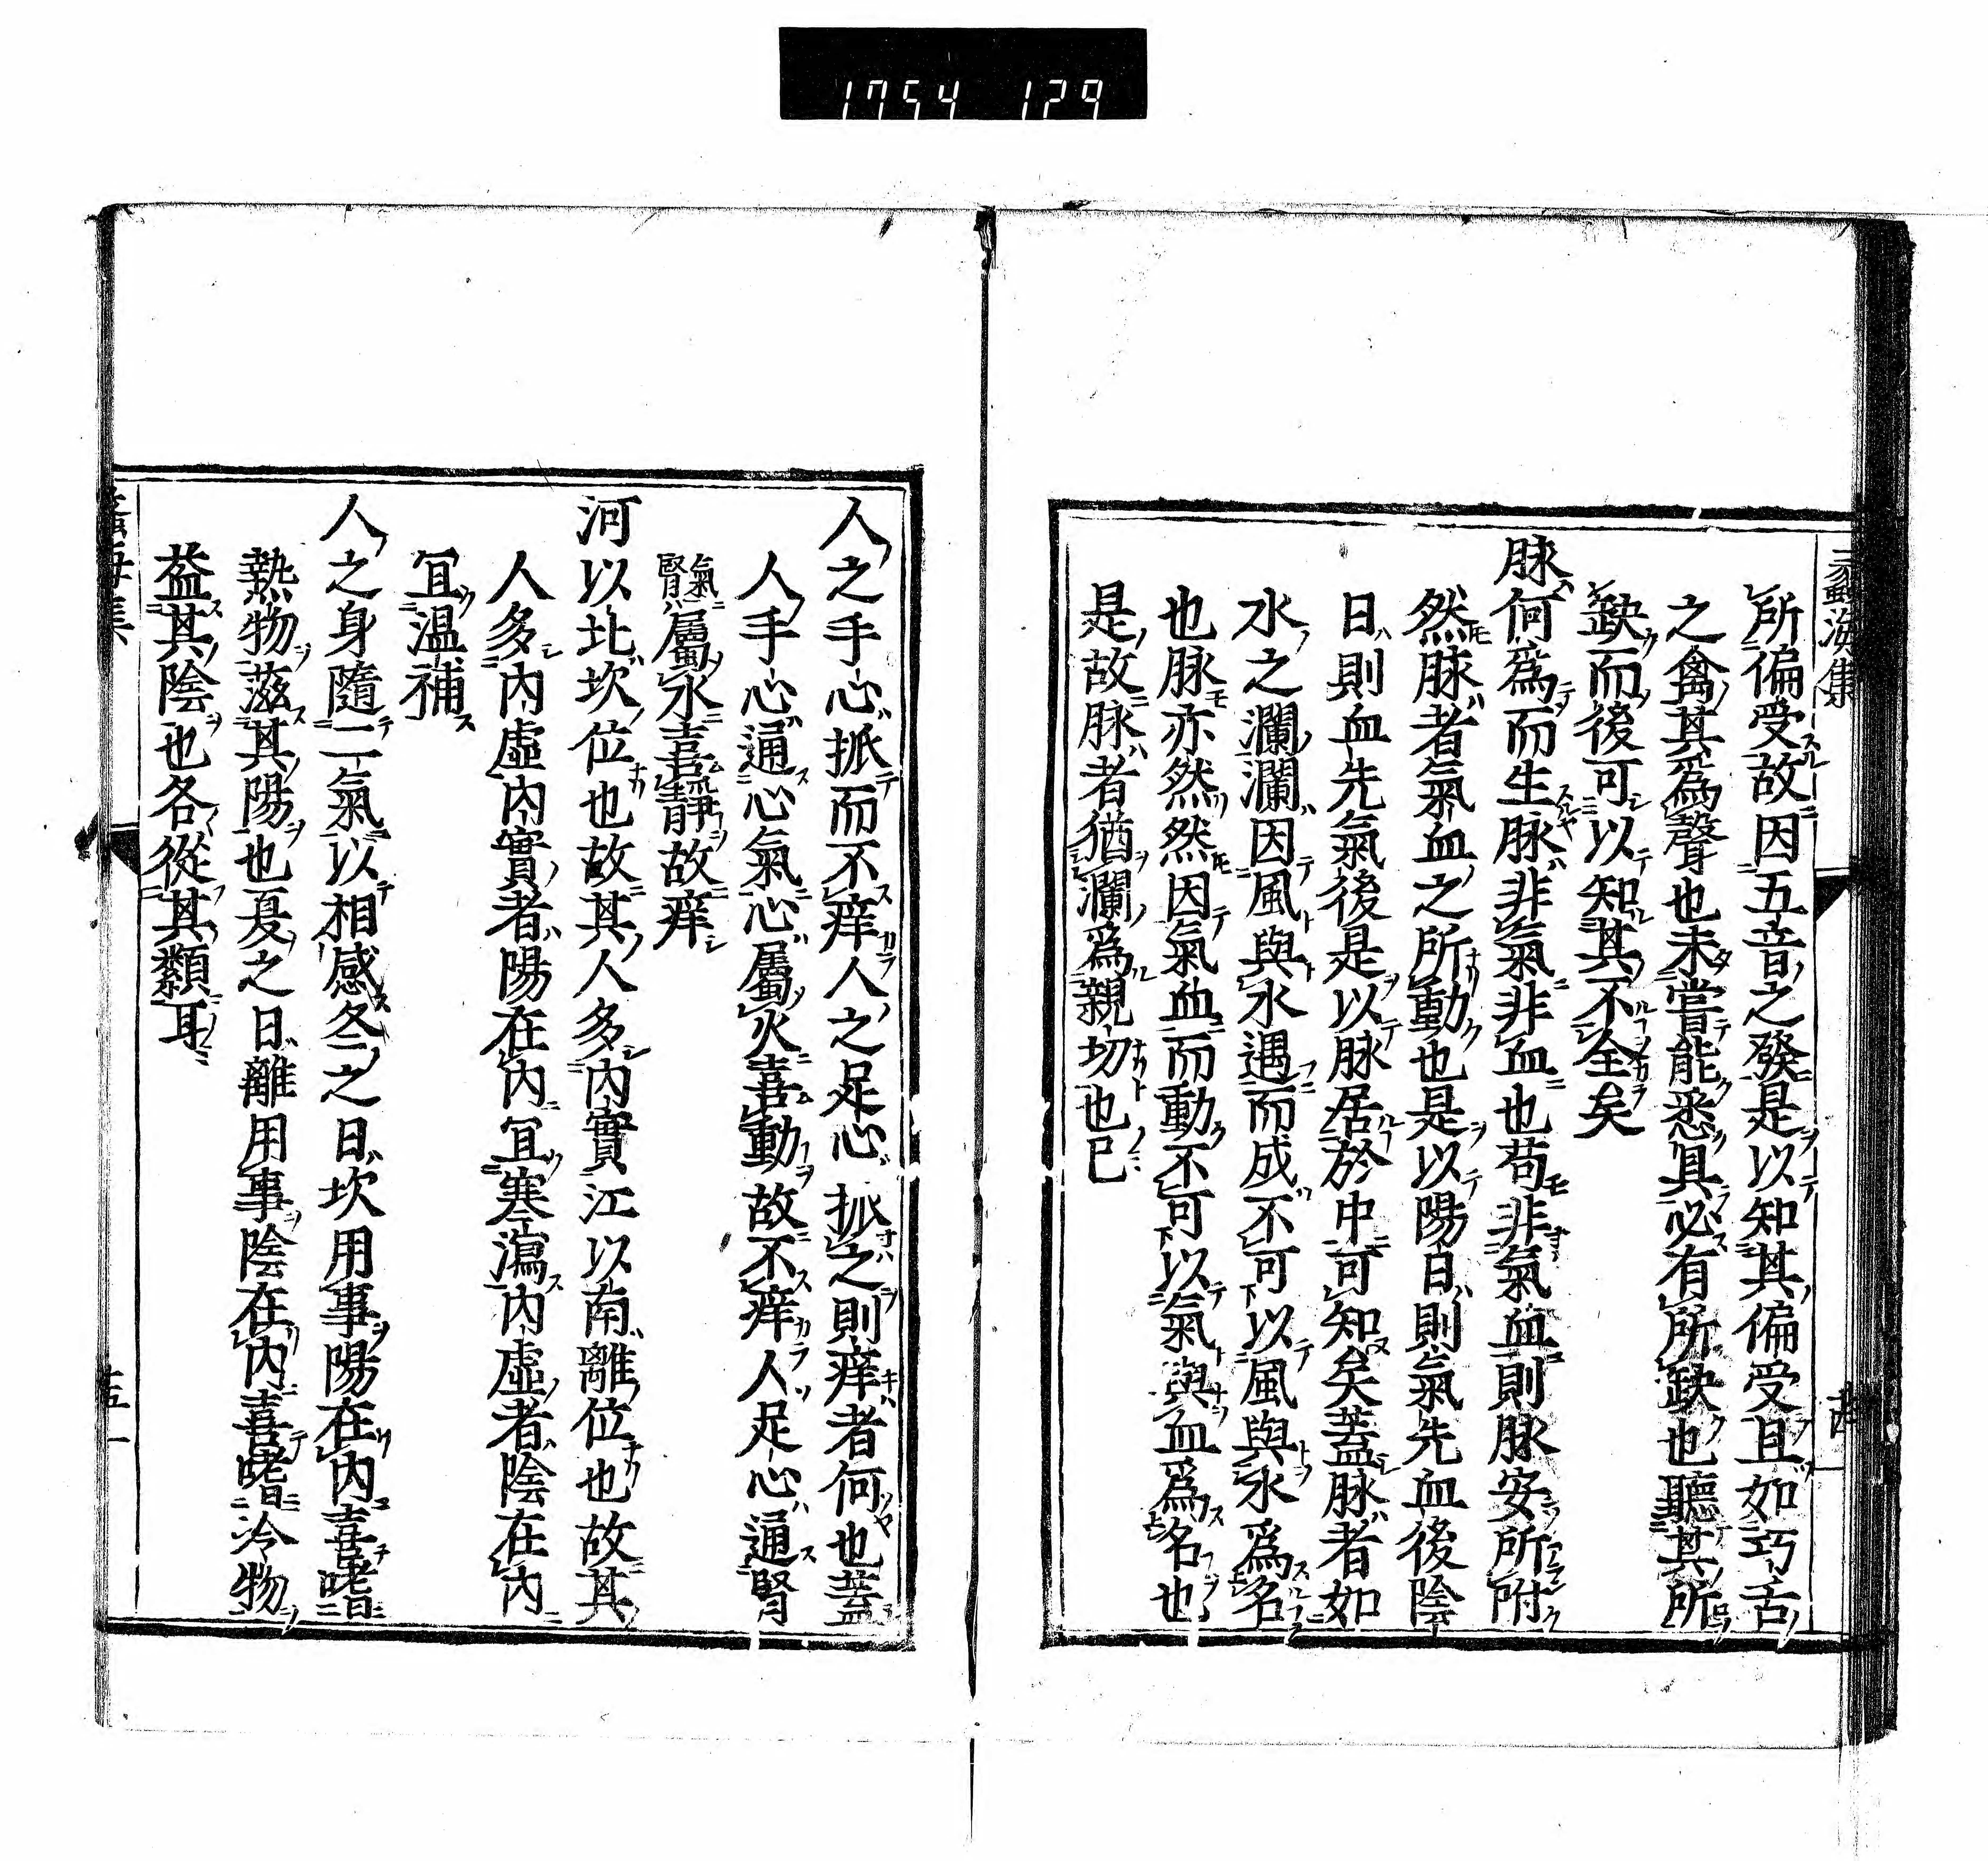 1754 129
蠡海集
所偏受故因五音之發是以知其偏受且如巧舌
之禽其爲聲也未嘗能悉具必有所缺也聽其所
缺而後可以知其不全矣
脉何爲而生脉非氣非血也苟非氣血則脉安所附
然脉者氣血之所動也是以陽日則氣先血後陰
日則血先氣後是以脉居於中可知矣蓋脉者如
水之瀾瀾因風與水遇而成不可以風與水爲名
也脉亦然然因氣血而動不可以氣與血爲名也
是故脉者猶瀾爲親切也已
人之手心抓而不痒人之足心抓之則痒者何也蓋
人手心通心氣心屬火喜動故不痒人足心通腎
氣腎屬水喜靜故痒
河以北坎位也故其人多內實江以南離位也故其
人多內虛內實者陽在內宜寒瀉內虛者陰在內
宜温補
人之身隨二氣以相感冬之日坎用事陽在內喜嗜
熱物滋其陽也夏之日離用事陰在內喜嗜冷物
益其陰也各從其類耳